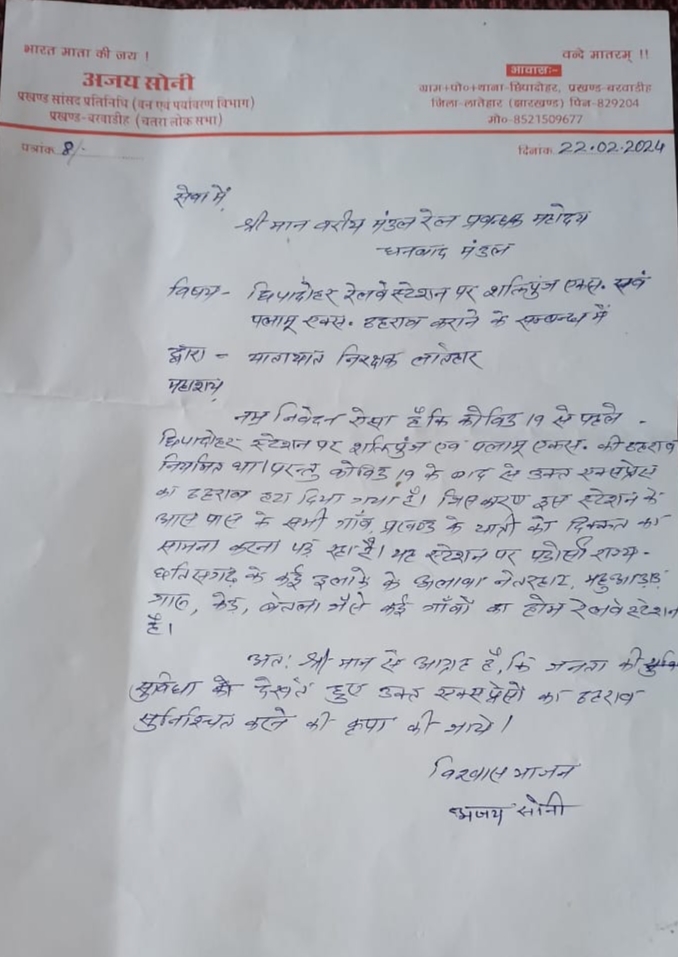 भारत माता की जय !
वन्दे मातरम् !!
अजय सोनी
प्रखण्ड सांसद प्रतिनिधि (वन एवं पर्यावरण विभाग)
प्रखण्ड-बरवाडीह (चतरा लोक सभा)
आवास:-
ग्राम+पो०+थाना-छिपादोहर, प्रखण्ड-बरवाडीह
जिला-लातेहार (झारखण्ड) पिन-829204
मो०-8521509677
पत्रांक 8/-
दिनांक 22.02.2024
सेवा में,
श्री मान वरीय मंडल रेल प्रबन्धक महोदय
धनबाद मंडल
विषय- छिपादोहर रेलवे स्टेशन पर शक्तिपुंज एक्स. एवं
पलामू एक्स. ठहराव कराने के सम्बन्ध में
द्वारा - यातायात निरक्षक लातेहार
महाशय,
नम्र निवेदन ऐसा है कि कोविड 19 से पहले
छिपादोहर स्टेशन पर शक्तिपुंज एवं पलामू एक्स. की ठहराव
नियमित था। परन्तु कोविड 19 के बाद से उक्त एक्सप्रेस
का ठहराव हटा दिया गया है। जिस कारण इस स्टेशन के
आस पास के सभी गाँव, प्रखण्ड के यात्री को दिक्कत का
सामना करना पड़ रहा है। यह स्टेशन पर पडोसी राज्य-
छत्तिसगढ़ के कई इलाके के अलावा नेतरहाट, महुआडांड़
गारू, केड़, बेतला जैसे कई गाँवों का होम रेलवे स्टेशन
है।
अत: श्री मान से आग्रह है, कि जनता की
सुविधा को देखते हुए उक्त एक्सप्रेसों का ठहराव
सुनिश्चित करने की कृपा की जाये।
विश्वास भाजन
अजय सोनी